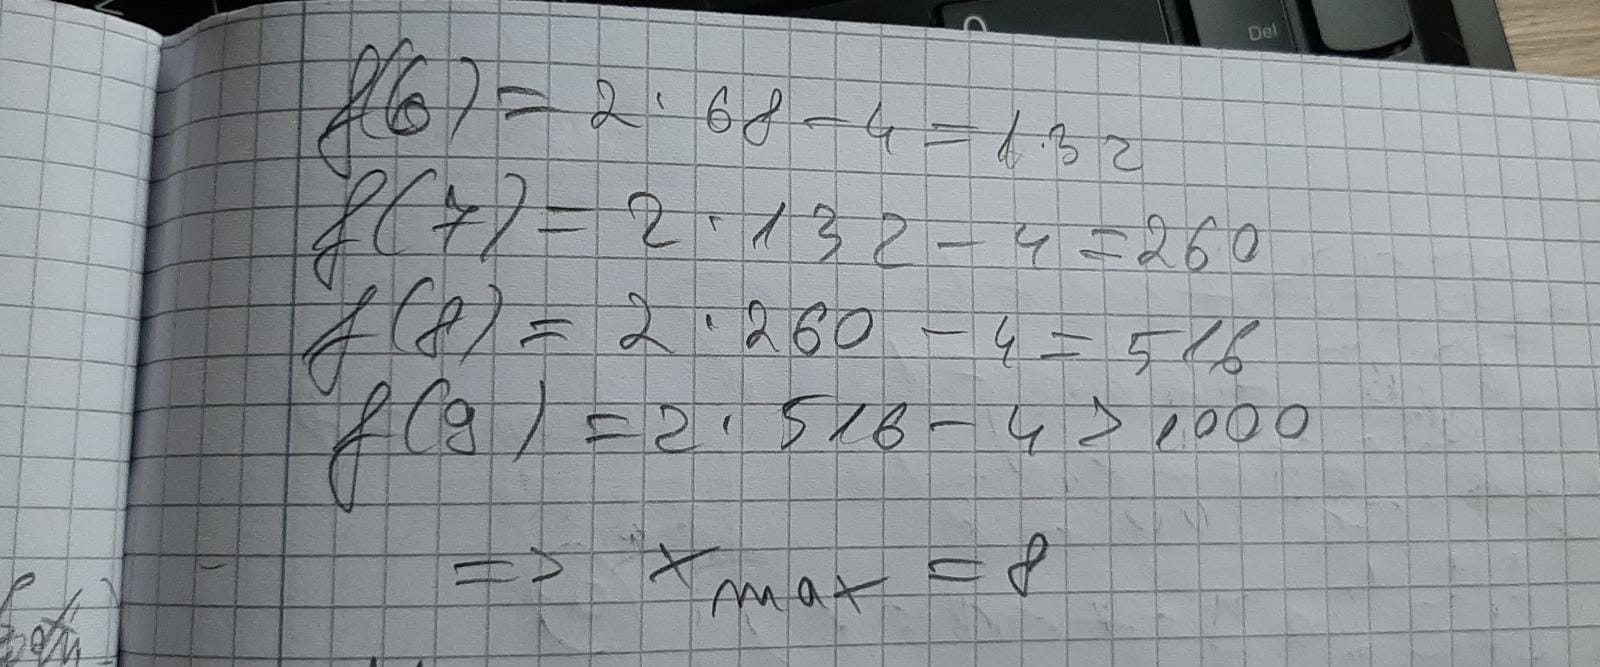 Del
f(6) = 2 · 68 - 4 = 132
f(7) = 2 · 132 - 4 = 260
f(8) = 2 · 260 - 4 = 516
f(9) = 2 · 516 - 4 > 1000
=> x max = 8